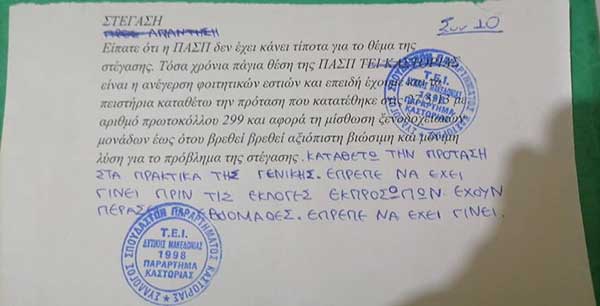 ΣΤΕΓΑΣΗ
ΠΡΟΣ ΑΠΑΝΤΗΣΗ
Συν 10
Είπατε ότι η ΠΑΣΠ δεν έχει κάνει τίποτα για το θέμα της
στέγασης. Τόσα χρόνια πάγια θέση της ΠΑΣΠ ΤΕΙ ΚΑΣΤΟΡΙΑΣ
είναι η ανέγερση φοιτητικών εστιών και επειδή έχουμε και τα
πειστήρια καταθέτω την πρόταση που κατατέθηκε στις με
αριθμό πρωτοκόλλου 299 και αφορά τη μίσθωση ξενοδοχειακών
μονάδων έως ότου βρεθεί βρεθεί αξιόπιστη βιώσιμη και μόνιμη
λύση για το πρόβλημα της στέγασης. ΚΑΤΑΘΕΤΩ ΤΗΝ ΠΡΟΤΑΣΗ
ΣΤΑ ΠΡΑΚΤΙΚΑ ΤΗΣ ΓΕΝΙΚΗΣ. ΕΠΡΕΠΕ ΝΑ ΕΧΕΙ
ΓΙΝΕΙ ΠΡΙΝ ΤΙΣ ΕΚΛΟΓΕΣ ΕΚΠΡΟΣΩΠΩΝ. ΕΧΟΥΝ
ΠΕΡΑΣΕΙ ΕΒΔΟΜΑΔΕΣ. ΕΠΡΕΠΕ ΝΑ ΕΧΕΙ ΓΙΝΕΙ.
ΣΥΛΛΟΓΟΣ ΣΠΟΥΔΑΣΤΩΝ ΠΑΡΑΡΤΗΜΑΤΟΣ ΚΑΣΤΟΡΙΑΣ
Τ.Ε.Ι.
ΔΥΤΙΚΗΣ ΜΑΚΕΔΟΝΙΑΣ
1998
ΠΑΡΑΡΤΗΜΑ
ΚΑΣΤΟΡΙΑΣ
ΣΥΛΛΟΓΟΣ ΣΠΟΥΔΑΣΤΩΝ ΠΑΡΑΡΤΗΜΑΤΟΣ ΚΑΣΤΟΡΙΑΣ
Τ.Ε.Ι.
ΔΥΤΙΚΗΣ ΜΑΚΕΔΟΝΙΑΣ
1998
ΠΑΡΑΡΤΗΜΑ
ΚΑΣΤΟΡΙΑΣ